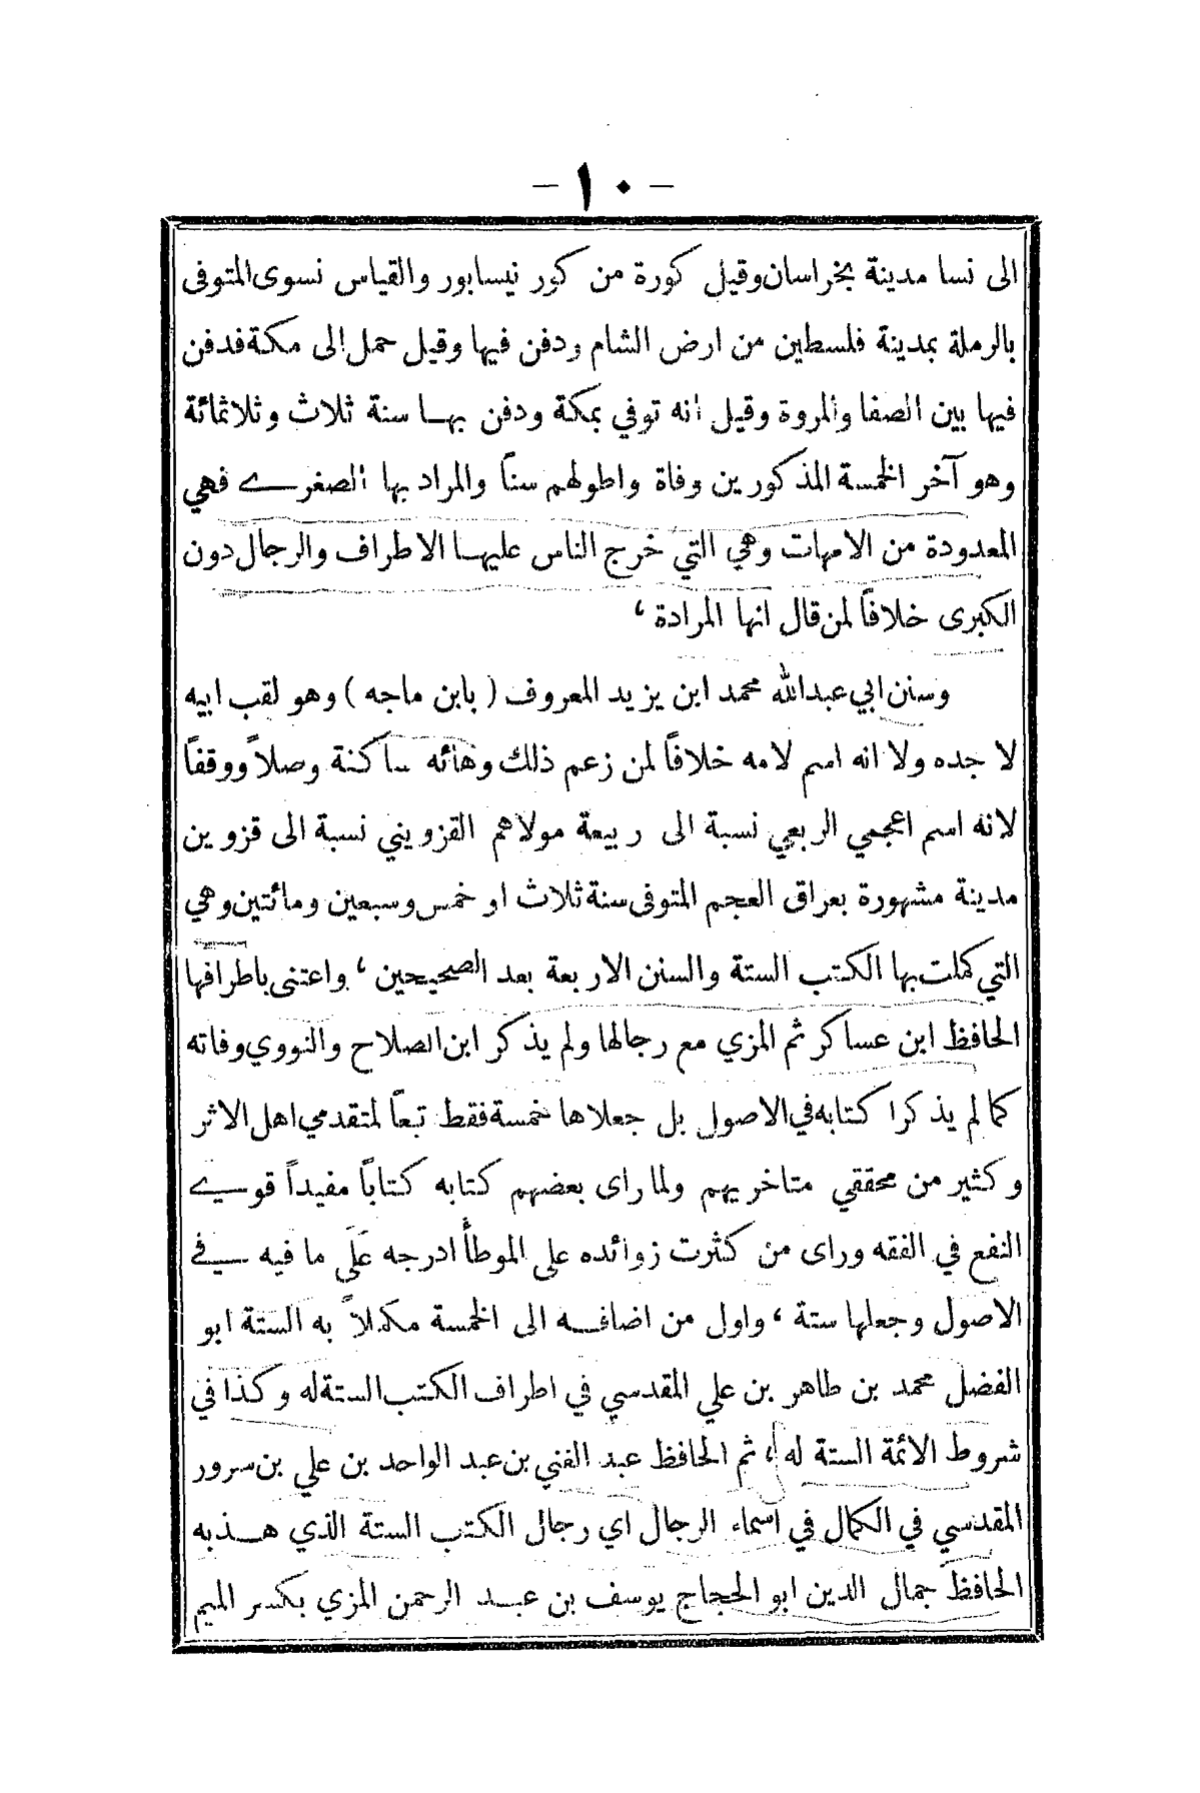 - ١٠ -
الى نسا مدينة بخراسان وقيل كورة من كور نيسابور والقياس نسوى المتوفى
بالرملة بمدينة فلسطين من ارض الشام ودفن فيها وقيل حمل الى مكة فدفن
فيها بين الصفا والمروة وقيل انه توفي بمكة ودفن بها سنة ثلاث وثلاثمائة
وهو آخر الخمسة المذكورين وفاة واطولهم سناً والمراد بها الصغرى فهي
المعدودة من الامهات وهي التي خرج الناس عليها الاطراف والرجال دون
الكبرى خلافاً لمن قال انها المرادة ،
وسنن ابي عبدالله محمد ابن يزيد المعروف ( بابن ماجه ) وهو لقب ابيه
لا جده ولا انه اسم لامه خلافاً لمن زعم ذلك وهائه ساكنة وصلاً ووقفاً
لانه اسم اعجمي الربعي نسبة الى ربيعة مولاهم القزويني نسبة الى قزوين
مدينة مشهورة بعراق العجم المتوفى سنة ثلاث او خمس وسبعين ومائتين وهي
التي كملت بها الكتب الستة والسنن الاربعة بعد الصحيحين ، واعتنى باطرافها
الحافظ ابن عساكر ثم المزي مع رجالها ولم يذكر ابن الصلاح والنووي وفاته
كما لم يذكرا كتابه في الاصول بل جعلاها خمسة فقط تبعاً لمتقدمي اهل الاثر
وكثير من محققي متاخريهم ولما راى بعضهم كتابه كتاباً مفيداً قوي
النفع في الفقه وراى من كثرت زوائده على الموطأ ادرجه عَلَى ما فيه في
الاصول وجعلها ستة ، واول من اضافه الى الخمسة مكملاً به الستة ابو
الفضل محمد بن طاهر بن علي المقدسي في اطراف الكتب الستة له وكذا في
شروط الائمة الستة له ، ثم الحافظ عبد الغني بن عبد الواحد بن علي بن سرور
المقدسي في الكمال في اسماء الرجال اي رجال الكتب الستة الذي هذبه
الحافظ جمال الدين ابو الحجاج يوسف بن عبد الرحمن المزي بكسر الميم